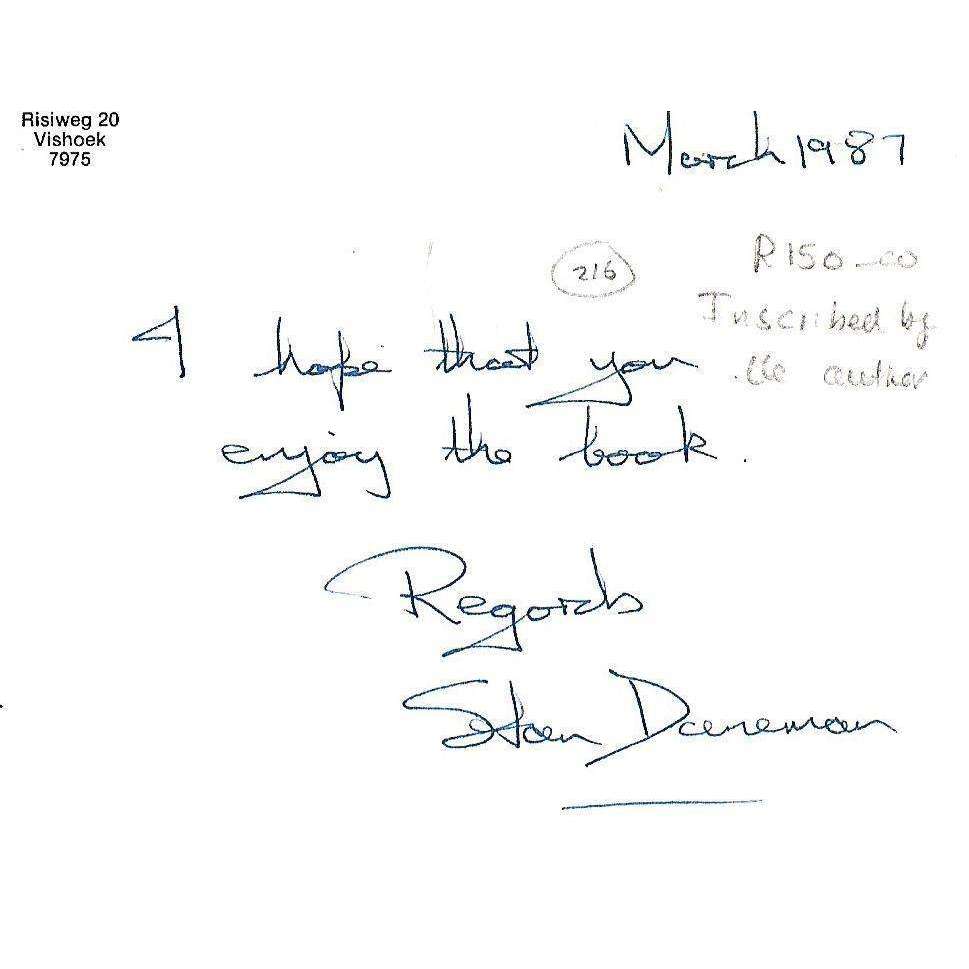 Risiweg 20
Vishoek
7975
March 1987
216
R150-00
Inscribed by
the author
I hope that you
enjoy the book.
Regards
Stan Daneman